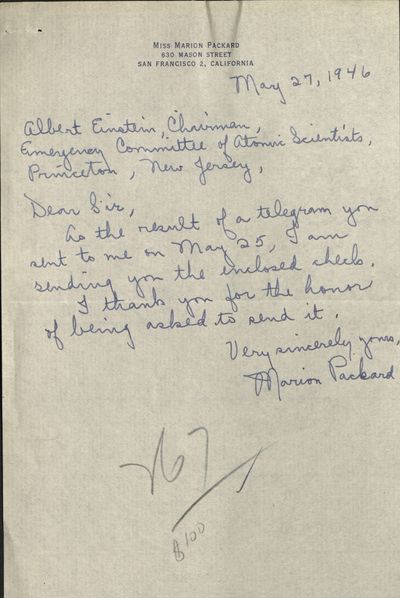 MISS MARION PACKARD
630 MASON STREET
SAN FRANCISCO 2, CALIFORNIA
May 27, 1946
Albert Einstein, Chairman,
Emergency Committee of Atomic Scientists,
Princeton, New Jersey,
Dear Sir,
As the result of a telegram you
sent to me on May 25, I am
sending you the enclosed check.
I thank you for the honor
of being asked to send it.
Very sincerely yours,
Marion Packard
$100